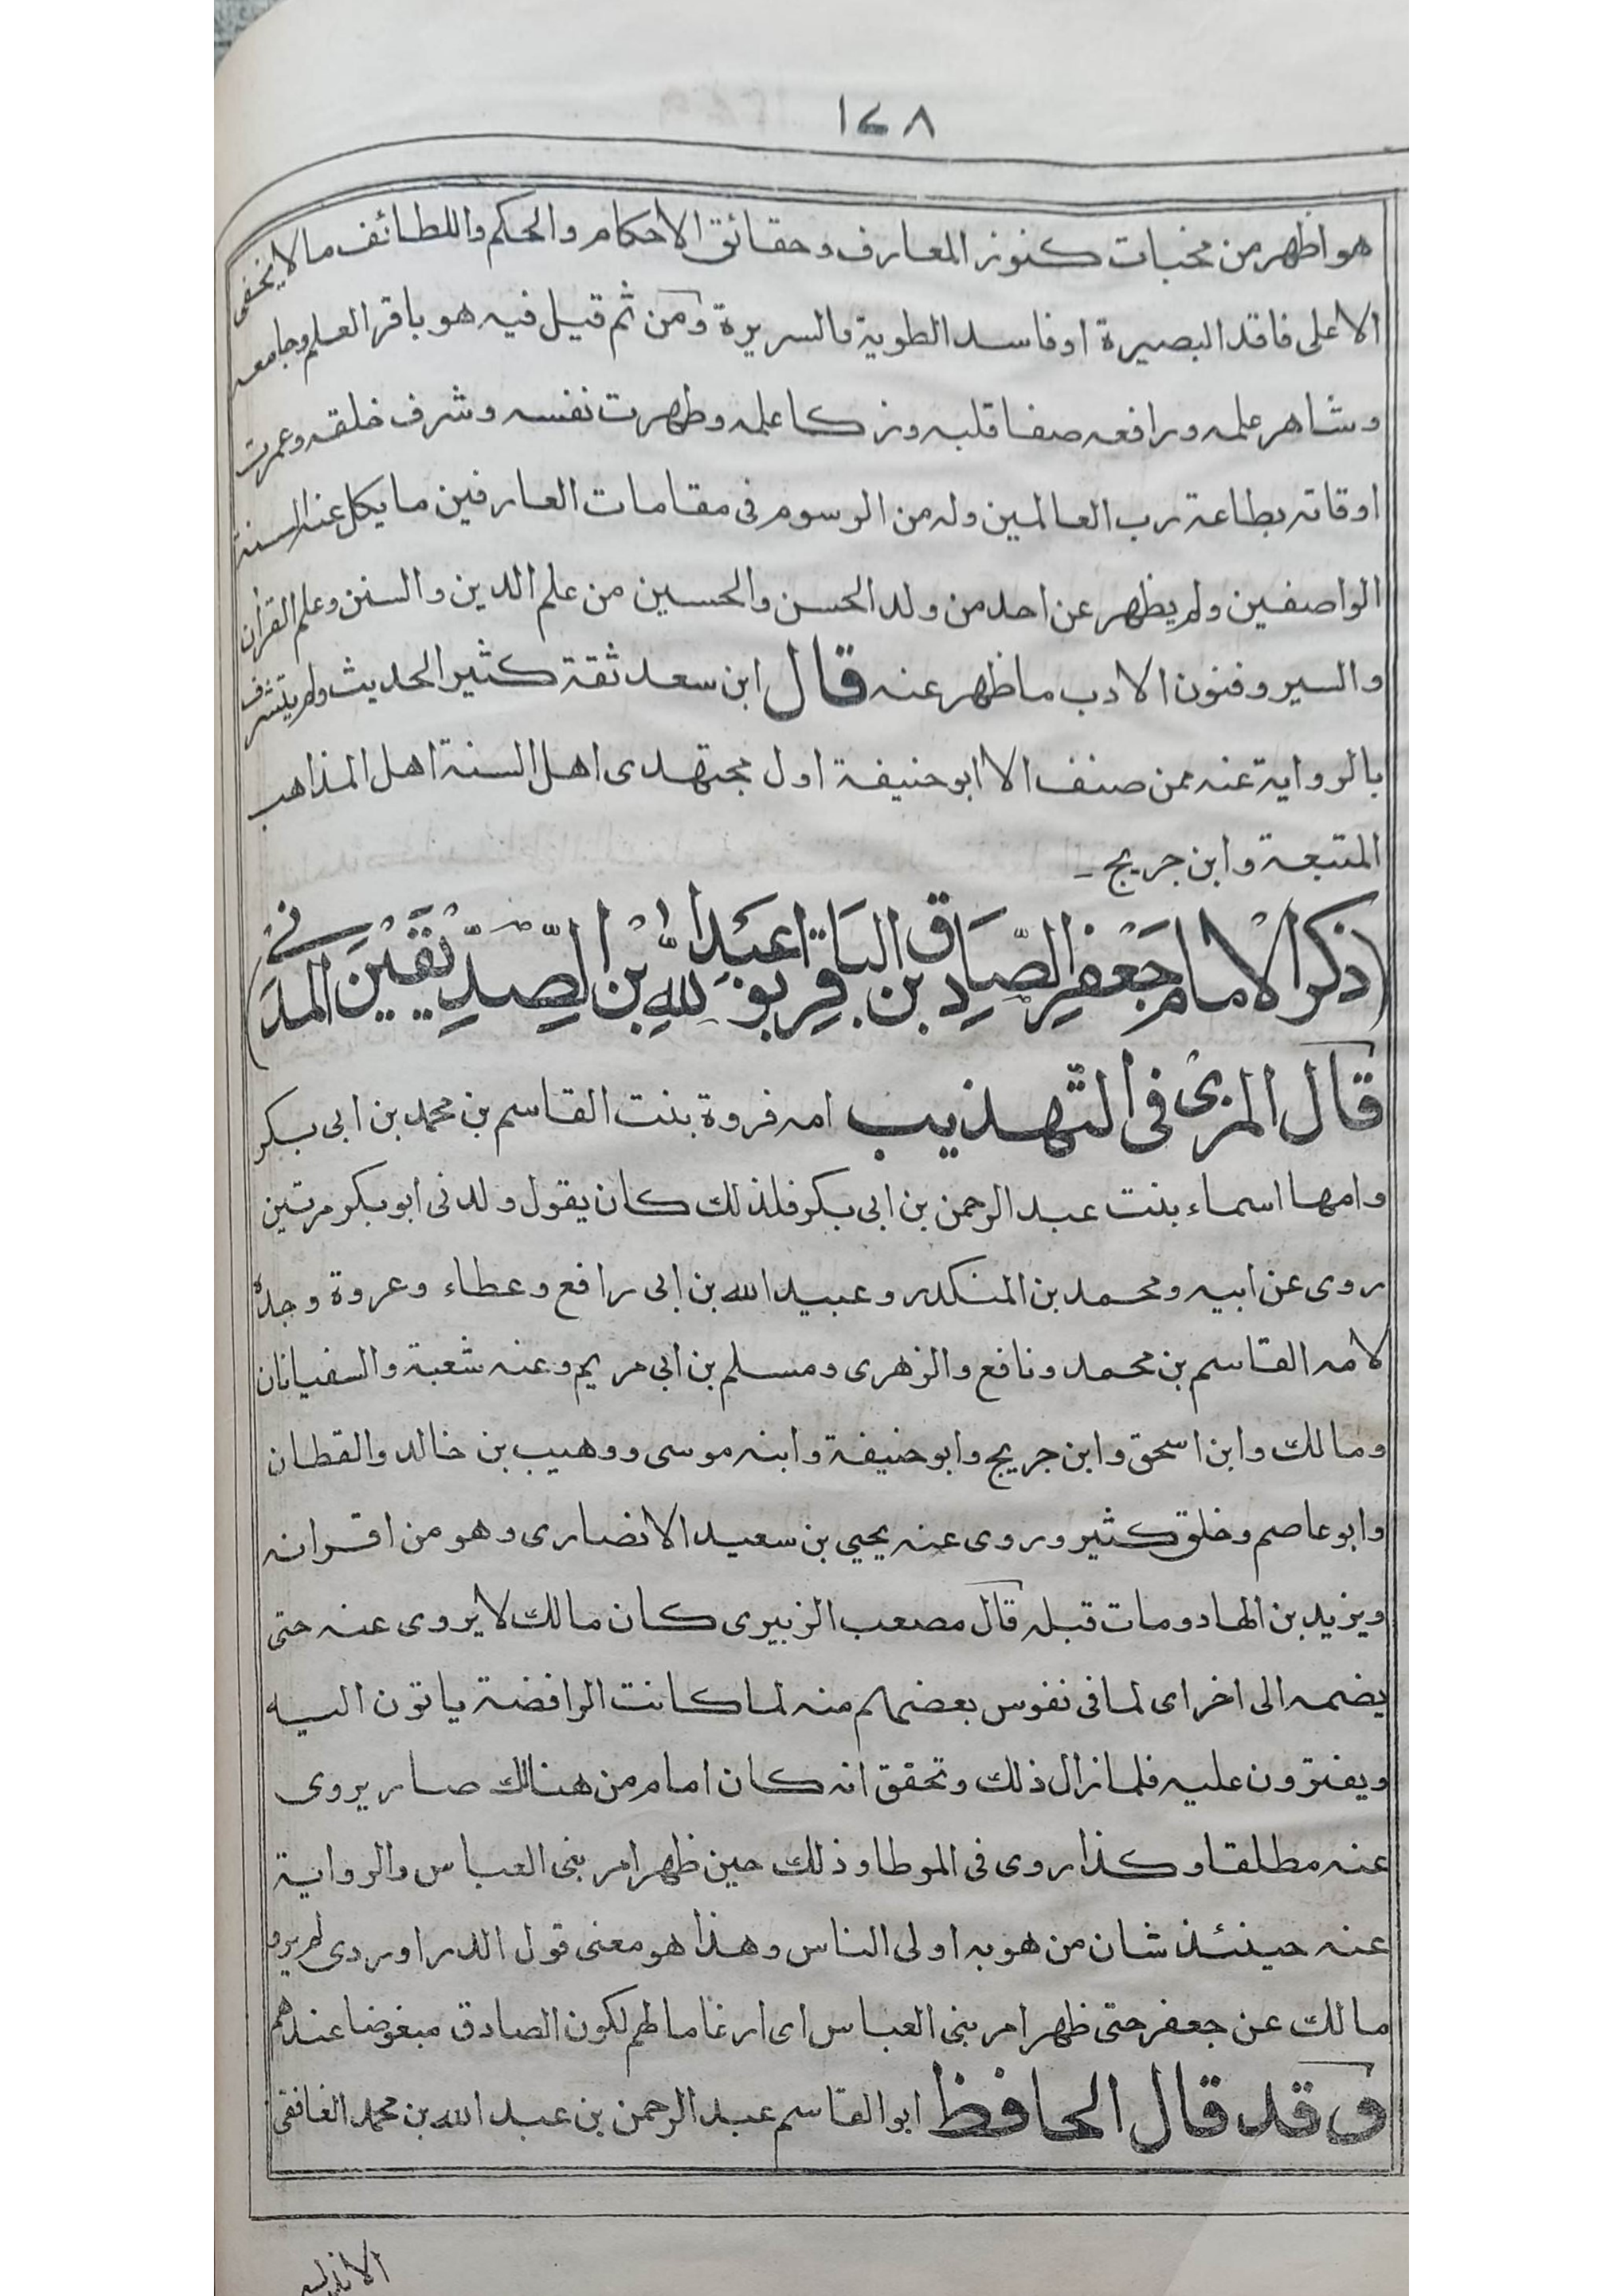 ١٤٨
هو اظهر من مخبات كنوز المعارف وحقائق الاحكام والحكم واللطائف مالا يخفى
الا على فاقد البصيرة او فاسد الطوية والسريرة ومن ثم قيل فيه هو باقر العلم وجامعه
وشاهر علمه ورافعه صفا قلبه وزكا علمه وطهرت نفسه وشرف خلقه وعمرت
اوقاته بطاعة رب العالمين وله من الرسوم فى مقامات العارفين ما يكل عنه السنة
الواصفين ولم يظهر عن احد من ولد الحسن والحسين من علم الدين والسنن وعلم القرآن
والسير وفنون الادب ما ظهر عنه قال ابن سعد ثقة كثير الحديث ولم يتشرف
بالرواية عنه ممن صنف الا ابو حنيفة اول مجتهدى اهل السنة اهل المذاهب
المتبعة وابن جريج -
(ذكر الامام جعفر الصادق بن الباقر ابو عبد الله بن الصديقين المدنى)
قال المزى فى التهذيب امه فروة بنت القاسم بن محمد بن ابى بكر
وامها اسماء بنت عبد الرحمن بن ابى بكر فلذلك كان يقول ولدنى ابو بكر مرتين
روى عن ابيه ومحمد بن المنكدر وعبيد الله بن ابى رافع وعطاء وعروة وجده
لامه القاسم بن محمد ونافع والزهرى ومسلم بن ابى مريم وعنه شعبة والسفيانان
ومالك وابن اسحق وابن جريج وابو حنيفة وابنه موسى ووهيب بن خالد والقطان
وابو عاصم وخلق كثير وروى عنه يحيي بن سعيد الانصارى وهو من اقرانه
ويزيد بن الهاد ومات قبله قال مصعب الزبيرى كان مالك لا يروى عنه حتى
يضمه الى اخر اى لما فى نفوس بعضهم منه لما كانت الرافضة ياتون اليه
ويفترون عليه فلما زال ذلك وتحقق انه كان امام من هنالك صار يروى
عنه مطلقا وكذا روى فى الموطا وذلك حين ظهر امر بنى العباس والرواية
عنه حينئذ شان من هو به اولى الناس وهذا هو معنى قول الدراوردى لم يرو
مالك عن جعفر حتى ظهر امر بنى العباس اى ارغاما لهم لكون الصادق مبغوضا عندهم
وقد قال الحافظ ابو القاسم عبد الرحمن بن عبد الله بن محمد الغافقى